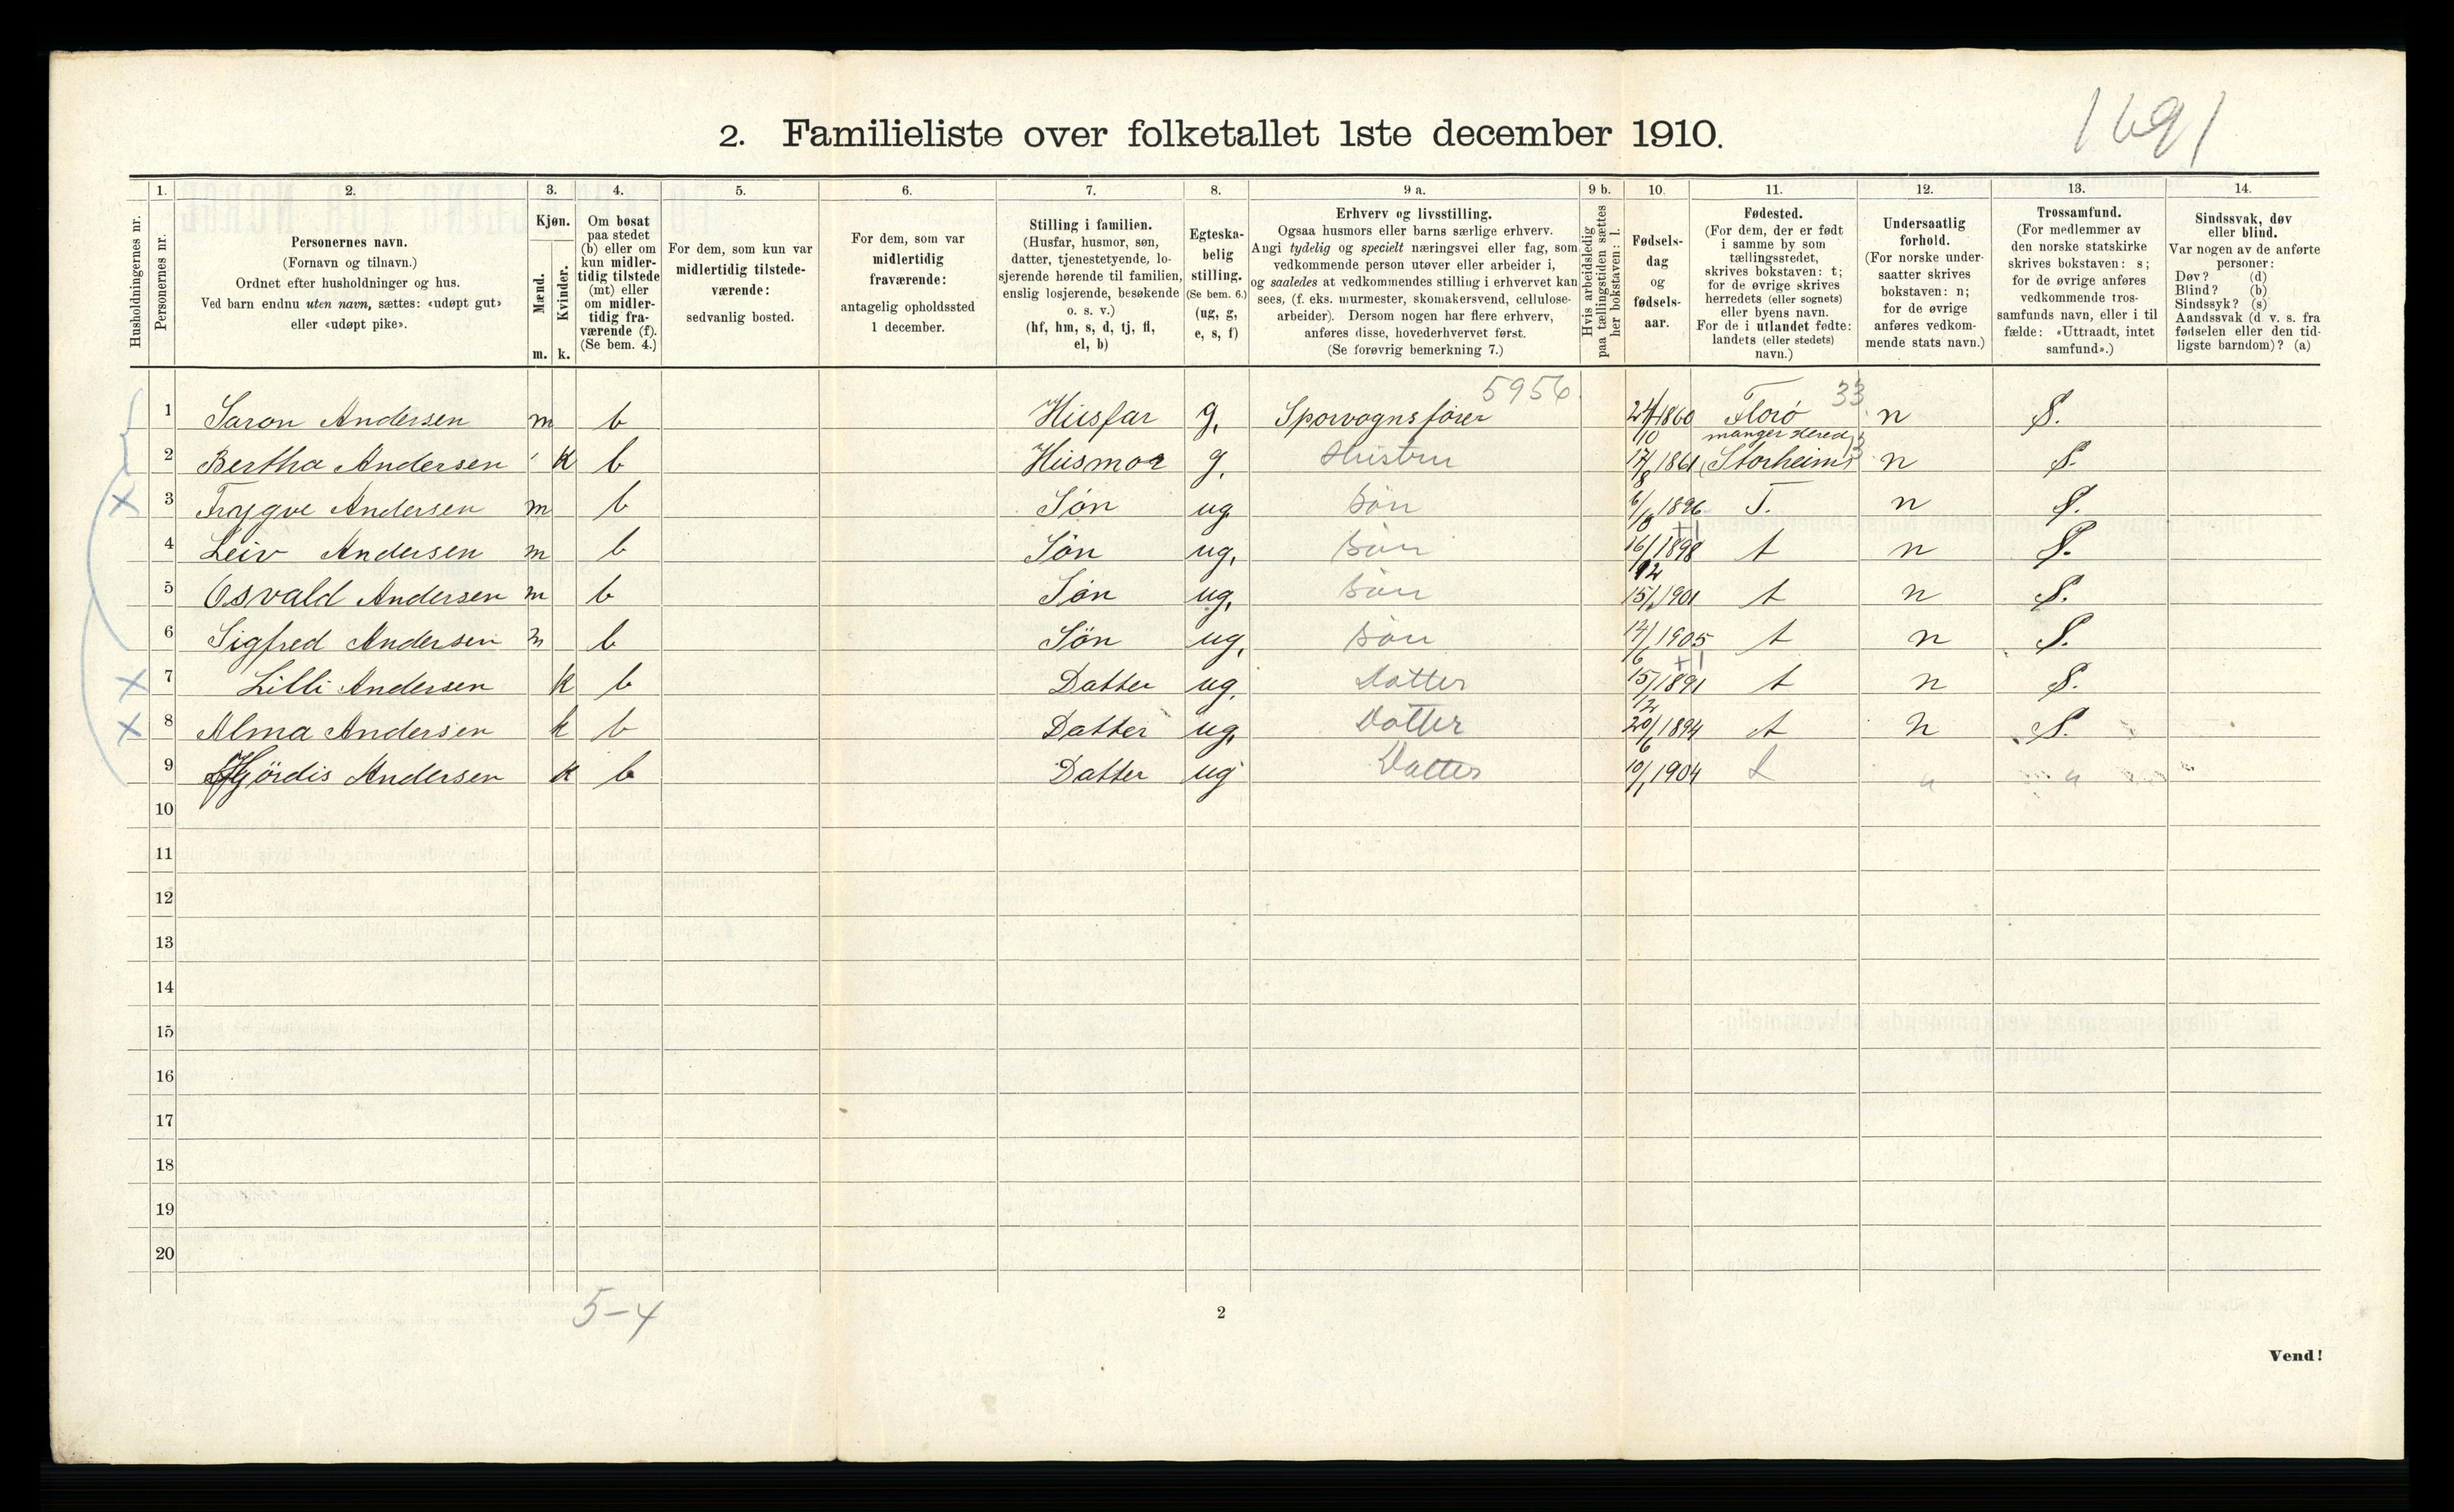 1691
2. Familieliste over folketallet 1ste december 1910.
Husholdningernes nr.
1. Personernes nr.
2. Personernes navn. (Fornavn og tilnavn.) Ordnet efter husholdninger og hus. Ved barn endnu uten navn, sættes: «udøpt gut» eller «udøpt pike».
3. Kjøn. Mænd. m. Kvinder. k.
4. Om bosat paa stedet (b) eller om kun midlertidig tilstede (mt) eller om midlertidig fraværende (f). (Se bem. 4.)
5. For dem, som kun var midlertidig tilstedeværende: sedvanlig bosted.
6. For dem, som var midlertidig fraværende: antagelig opholdssted 1 december.
7. Stilling i familien. (Husfar, husmor, søn, datter, tjenestetyende, losjerende hørende til familien, enslig losjerende, besøkende o. s. v.) (hf, hm, s, d, tj, fl, el, b)
8. Egteskabelig stilling. (Se bem. 6.) (ug, g, e, s, f)
9 a. Erhverv og livsstilling. Ogsaa husmors eller barns særlige erhverv. Angi tydelig og specielt næringsvei eller fag, som vedkommende person utøver eller arbeider i, og saaledes at vedkommendes stilling i erhvervet kan sees, (f. eks. murmester, skomakersvend, cellulosearbeider). Dersom nogen har flere erhverv, anføres disse, hovederhvervet først. (Se forøvrig bemerkning 7.)
9 b. Hvis arbeidsledig paa tællingstiden sættes her bokstaven: l.
10. Fødselsdag og fødselsaar.
11. Fødested. (For dem, der er født i samme by som tællingsstedet, skrives bokstaven: t; for de øvrige skrives herredets (eller sognets) eller byens navn. For de i utlandet fødte: landets (eller stedets) navn.)
12. Undersaatlig forhold. (For norske undersaatter skrives bokstaven: n; for de øvrige anføres vedkommende stats navn.)
13. Trossamfund. (For medlemmer av den norske statskirke skrives bokstaven: s; for de øvrige anføres vedkommende trossamfunds navn, eller i tilfælde: «Uttraadt, intet samfund».)
14. Sindssvak, døv eller blind. Var nogen av de anførte personer: Døv? (d) Blind? (b) Sindssyk? (s) Aandssvak (d. v. s. fra fødselen eller den tidligste barndom)? (a)
5956 33
1 Saron Andersen m b Husfar g, Sporvognsfører 24/10 1860 Florö n S.
manger Hered
2 Bertha Andersen K b Husmor g, Hustru 17/8 1861 Storheim n S.
3 Trygve Andersen m b Sön ug Sön 6/8 1896 T. n S.
4 Leiv Andersen m b Sön ug, Sön 16/12 1898 t n S.
5 Osvald Andersen m b Sön ug, Sön 1901 t n S.
6 Sigfred Andersen m b Sön ug, Sön 14/6 1905 t n S.
7 Lilli Andersen K b Datter ug, Datter 15/12 1891 t n S.
8 Alma Andersen k b Datter ug, Datter 20/6 1894 t n S.
9 Hjördis Andersen K b Datter ug Datter 10/1 1904 t " "
10
11
12
13
14
15
16
17
18
19
20
5-4
2
Vend!